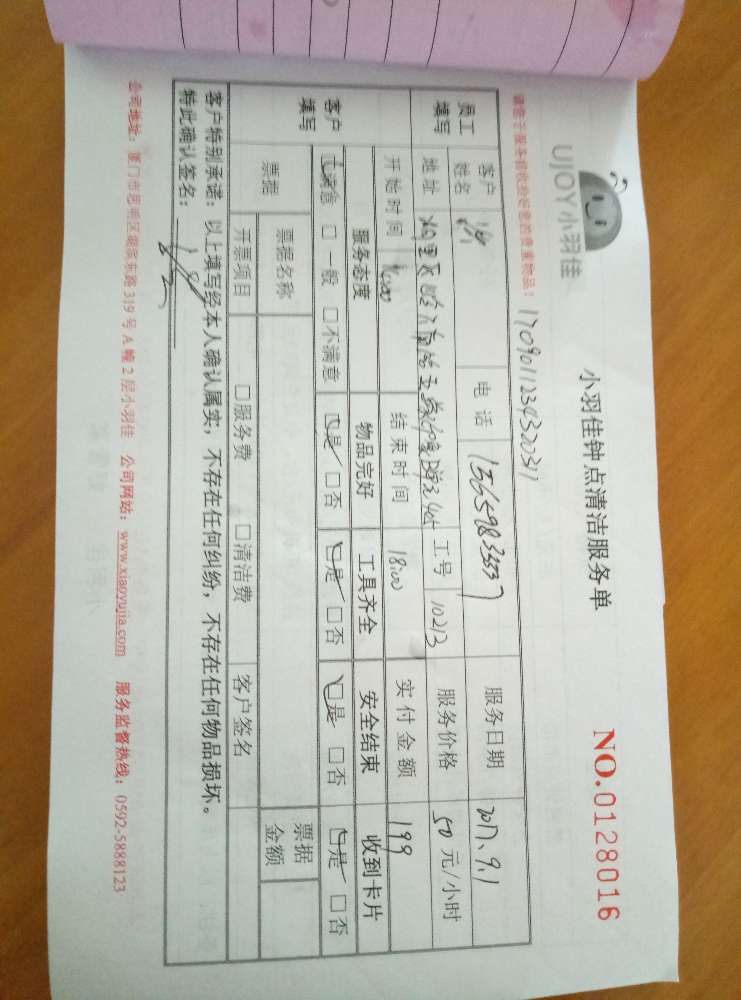 UJOY小羽佳
小羽佳钟点清洁服务单
NO.0128016
请您于服务前收捡好您的贵重物品！ 17090112343203117
员工填写 客户姓名 电话 服务日期 2017、9.1
地址 工号 10213 服务价格 50 元/小时
开始时间 结束时间 18:00 实付金额 199
客户填写 服务态度 物品完好 工具齐全 安全结束 收到卡片
满意 一般 不满意 是 否 是 否 是 否 是 否
票据 票据名称 票据金额
开票项目 服务费 清洁费 客户签名
客户特别承诺：以上填写经本人确认属实，不存在任何纠纷，不存在任何物品损坏。
特此确认签名：
公司地址：厦门市思明区湖滨东路 319 号 A 幢 2 层小羽佳 公司网站：www.xiaoyujia.com 服务监督热线：0592-5888123